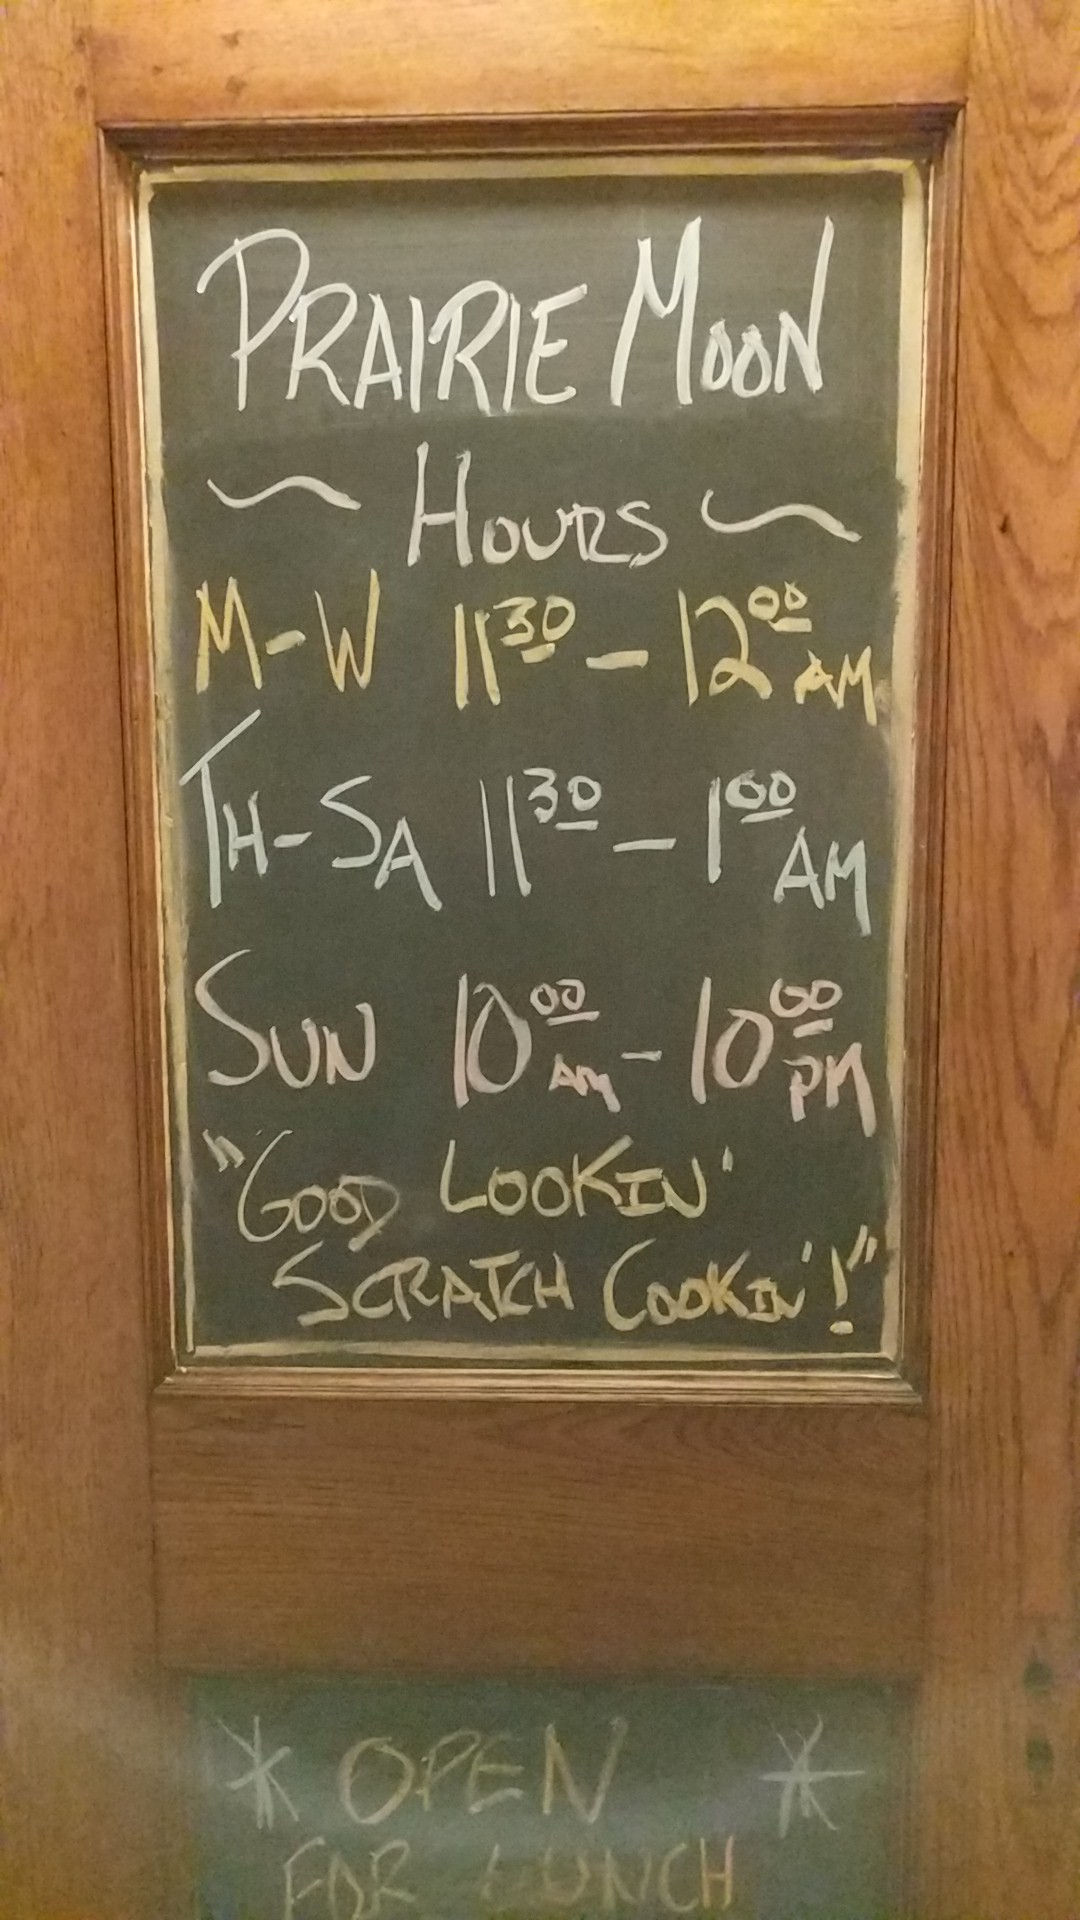 PRAIRIE MOON
~ HOURS ~
M-W 11 30 - 12 00 AM
TH-SA 11 30 - 1 00 AM
SUN 10 00 AM - 10 00 PM
"GOOD LOOKIN'
SCRATCH COOKIN'!"
* OPEN *
FOR LUNCH